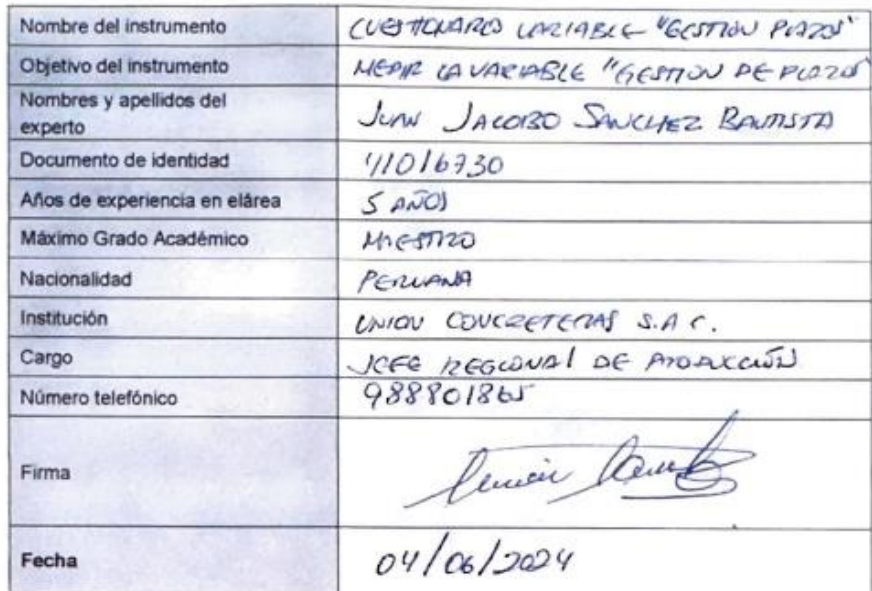 Nombre del instrumento CUESTIONARIO VARIABLE "GESTION PLAZOS"
Objetivo del instrumento MEDIR LA VARIABLE "GESTION DE PLAZOS"
Nombres y apellidos del
experto JUAN JACOBO SANCHEZ BAUTISTA
Documento de identidad 41016730
Años de experiencia en elárea 5 AÑOS
Máximo Grado Académico MAESTRO
Nacionalidad PERUANA
Institución UNION CONCRETERAS S.A.C.
Cargo JEFE REGIONAL DE PRODUCCIÓN
Número telefónico 988801865
Firma
Fecha 04/06/2024